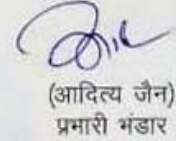 (आदित्य जैन)
प्रभारी भंडार